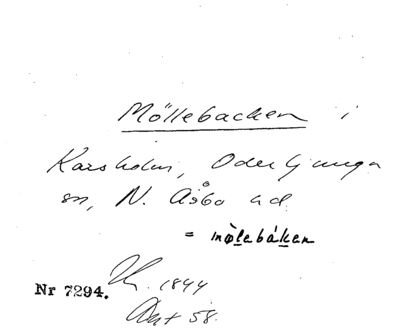 Möllebacken i
Karsholm, Oderljunga
sn, N. Åsbo hd.
= mølebaken
Nr 7294. 1844
58.